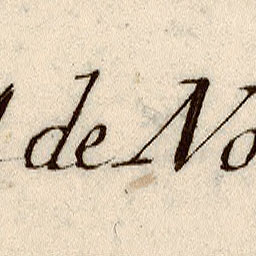 de No